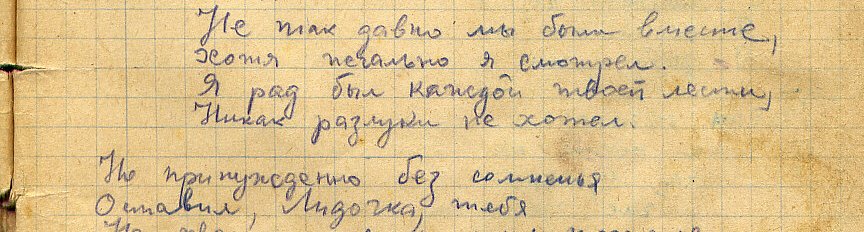 Не так давно мы были вместе,
Хотя печально я смотрел.
Я рад был каждой твоей лести,
Никак разлуки не хотел.
Но принужденно без сомненья
Оставил, Лидочка, тебя